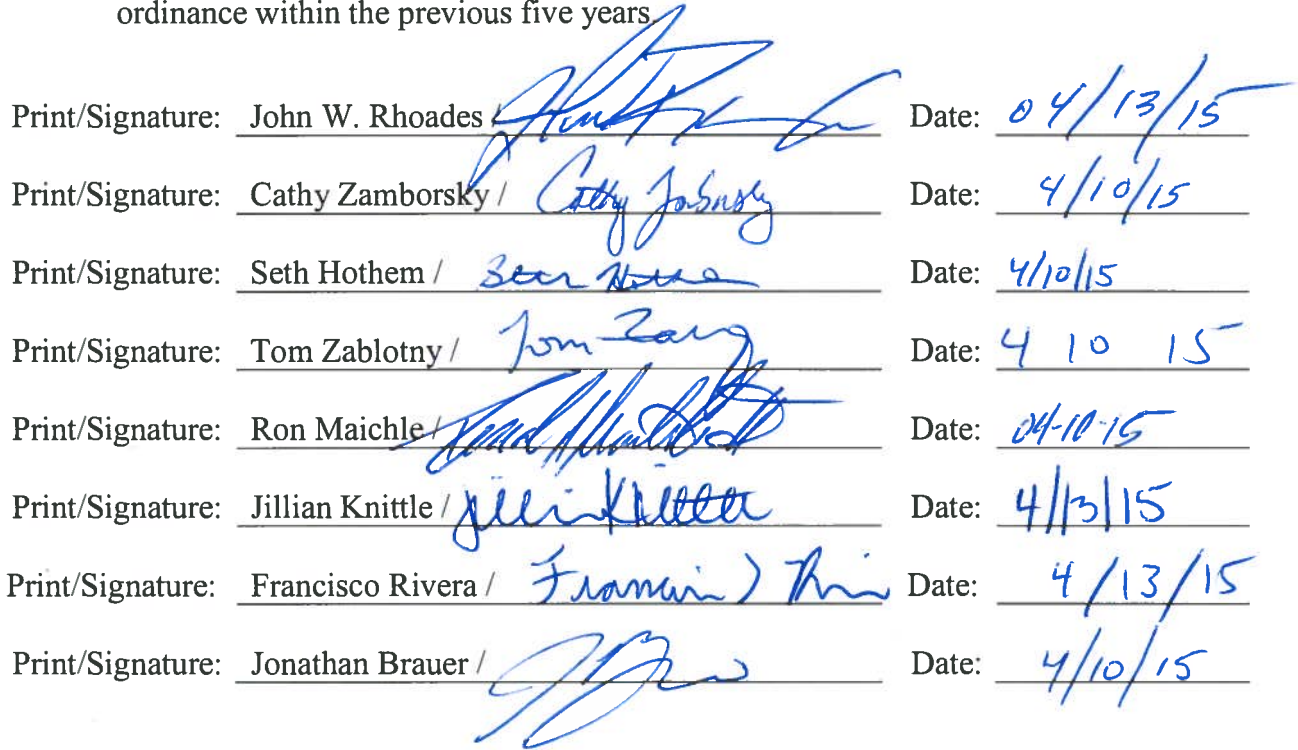 ordinance within the previous five years.
Print/Signature: John W. Rhoades / Date: 04/13/15
Print/Signature: Cathy Zamborsky / Cathy Date: 4/10/15
Print/Signature: Seth Hothem / Date: 4/10/15
Print/Signature: Tom Zablotny / Tom Date: 4 10 15
Print/Signature: Ron Maichle / Date: 04-10-15
Print/Signature: Jillian Knittle / Jillian Knittle Date: 4/13/15
Print/Signature: Francisco Rivera / Date: 4/13/15
Print/Signature: Jonathan Brauer / Date: 4/10/15